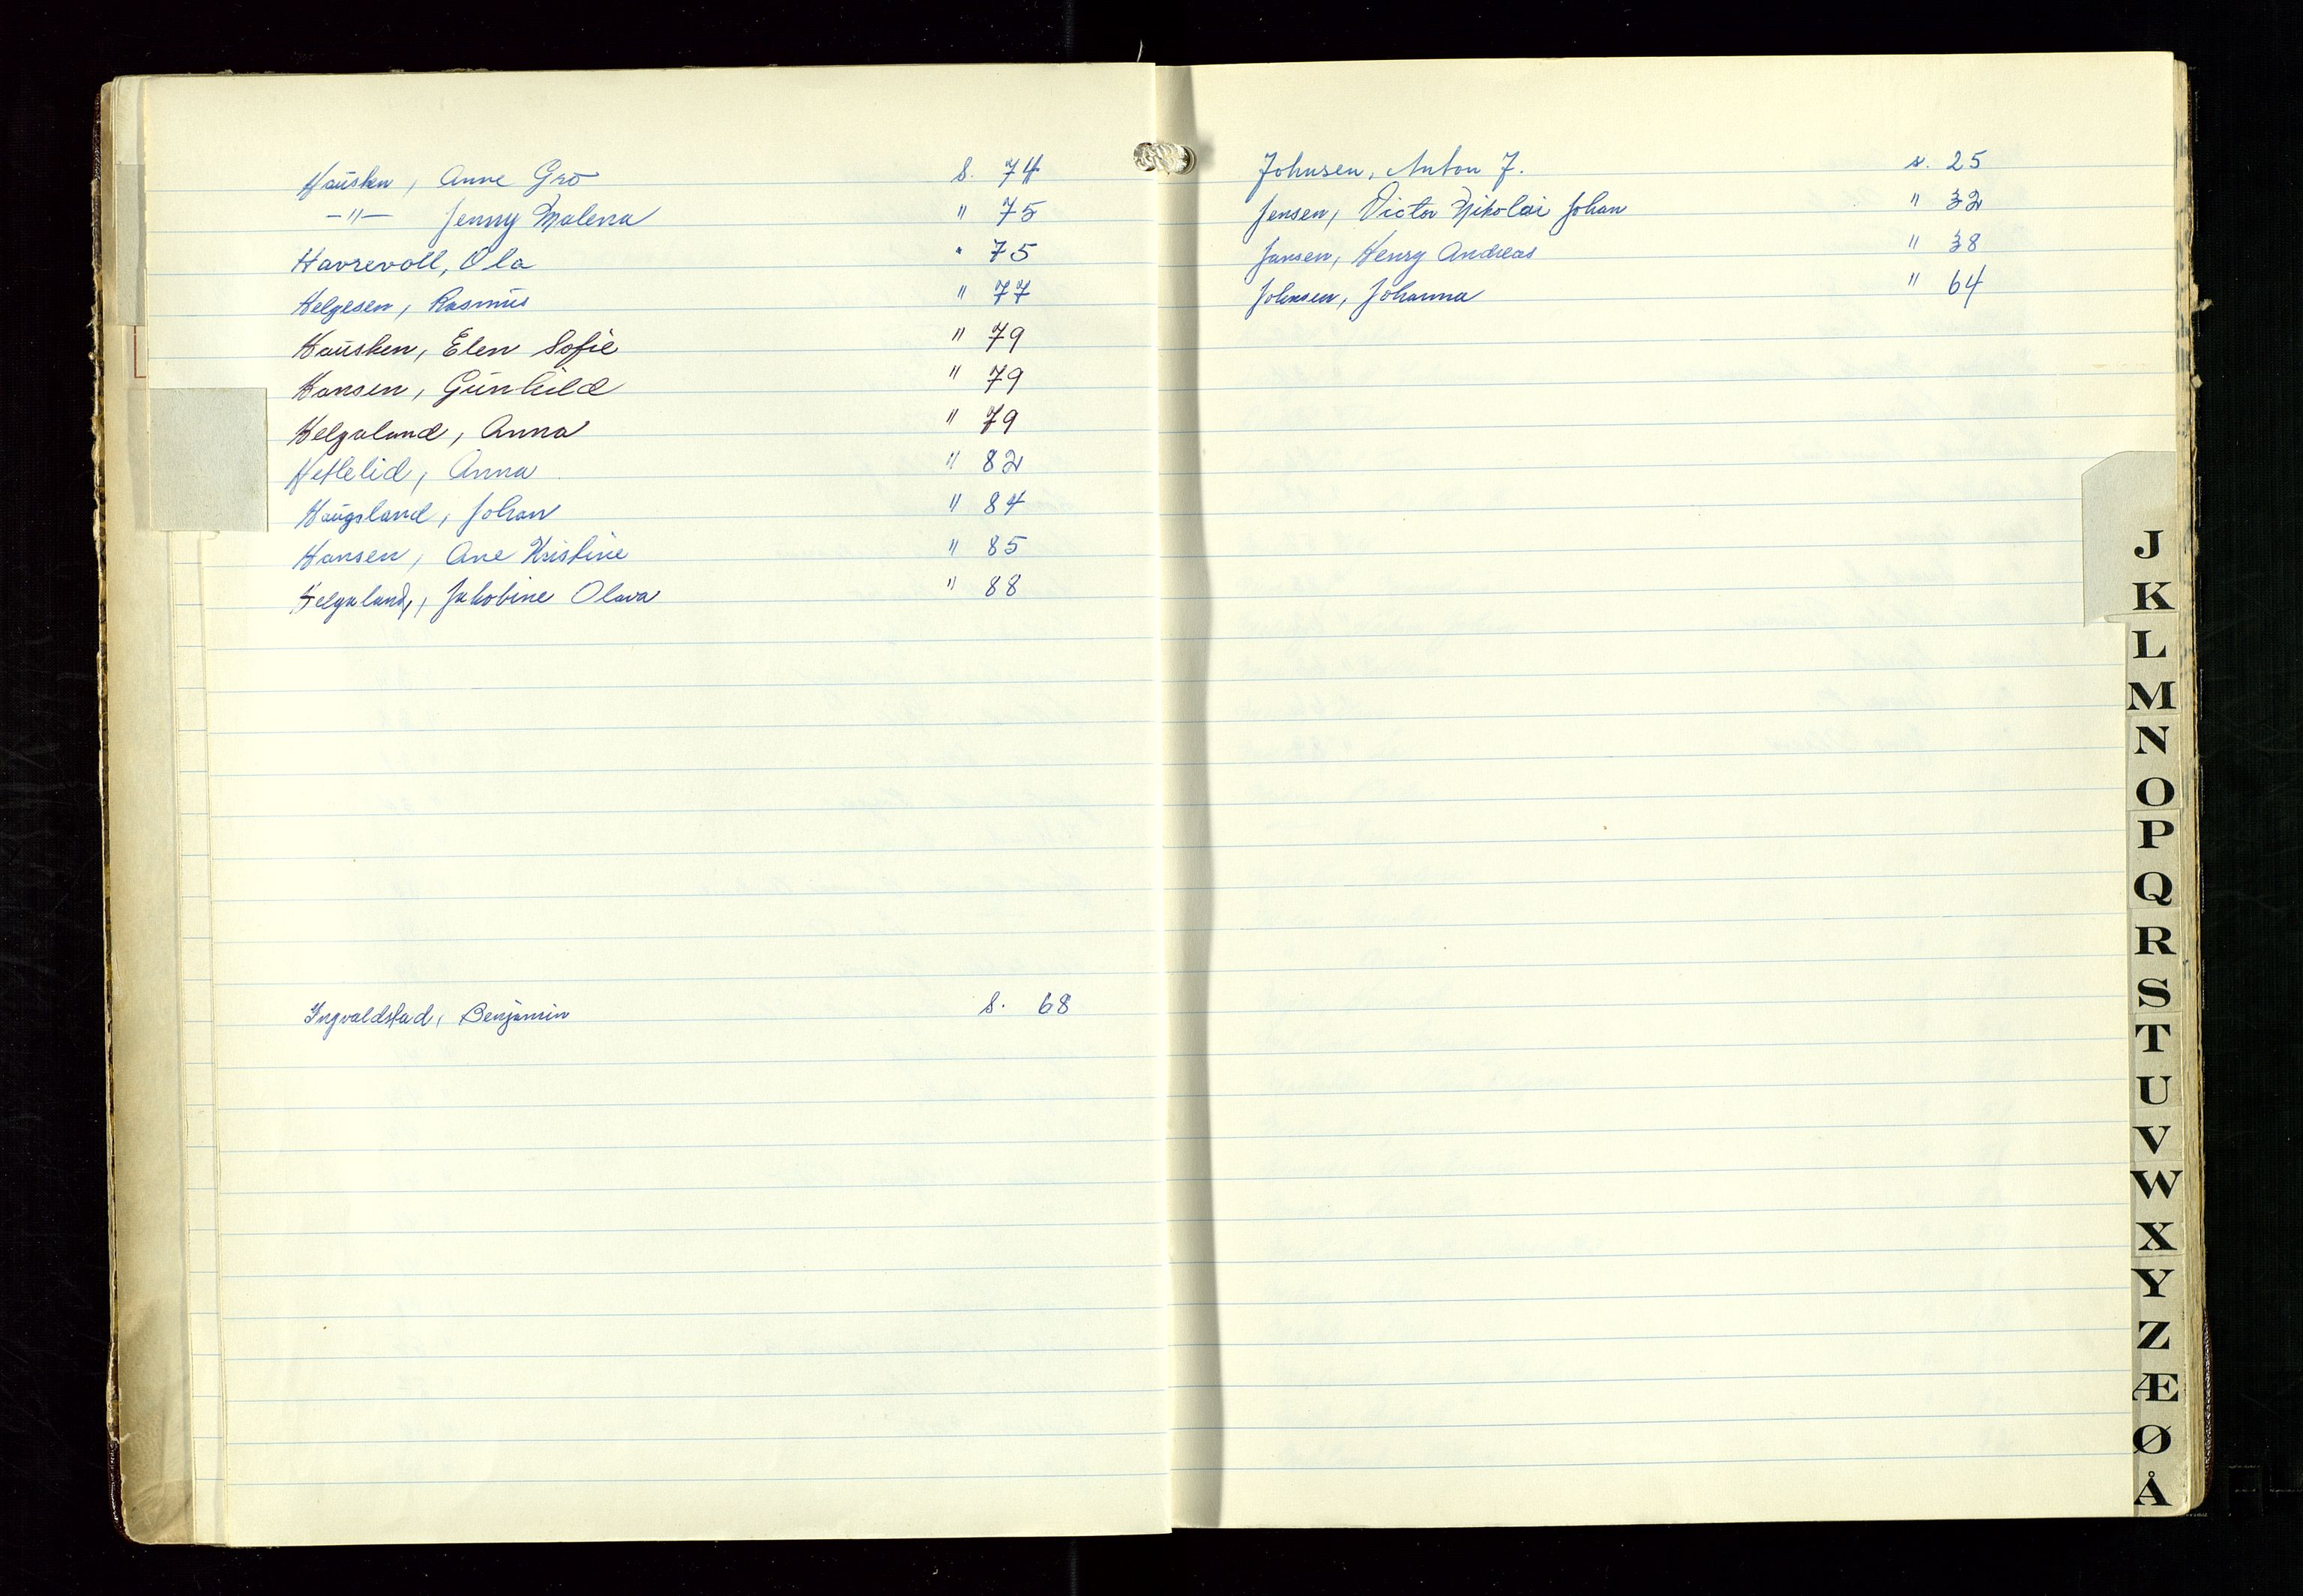 Hausken, Anne Gro S. 74
-"- Jenny Malena " 75
Havrevoll, Ola " 75
Helgesen, Rasmus " 77
Hausken, Elen Sofie " 79
Hansen, Gunhild " 79
Helgaland, Anna " 79
Hetlelid, Anna " 82
Haugsland, Johan " 84
Hansen, Ane Kristine " 85
Helgaland, Jakobine Olava " 88
Ingvaldstad, Benjamin S. 68
Johnsen, Anton J. s. 25
Jensen, Victor Nikolai Johan " 32
Jansen, Henry Andreas " 38
Johnsen, Johanna " 64
J
K
L
M
N
O
P
Q
R
S
T
U
V
W
X
Y
Z
Æ
Ø
Å